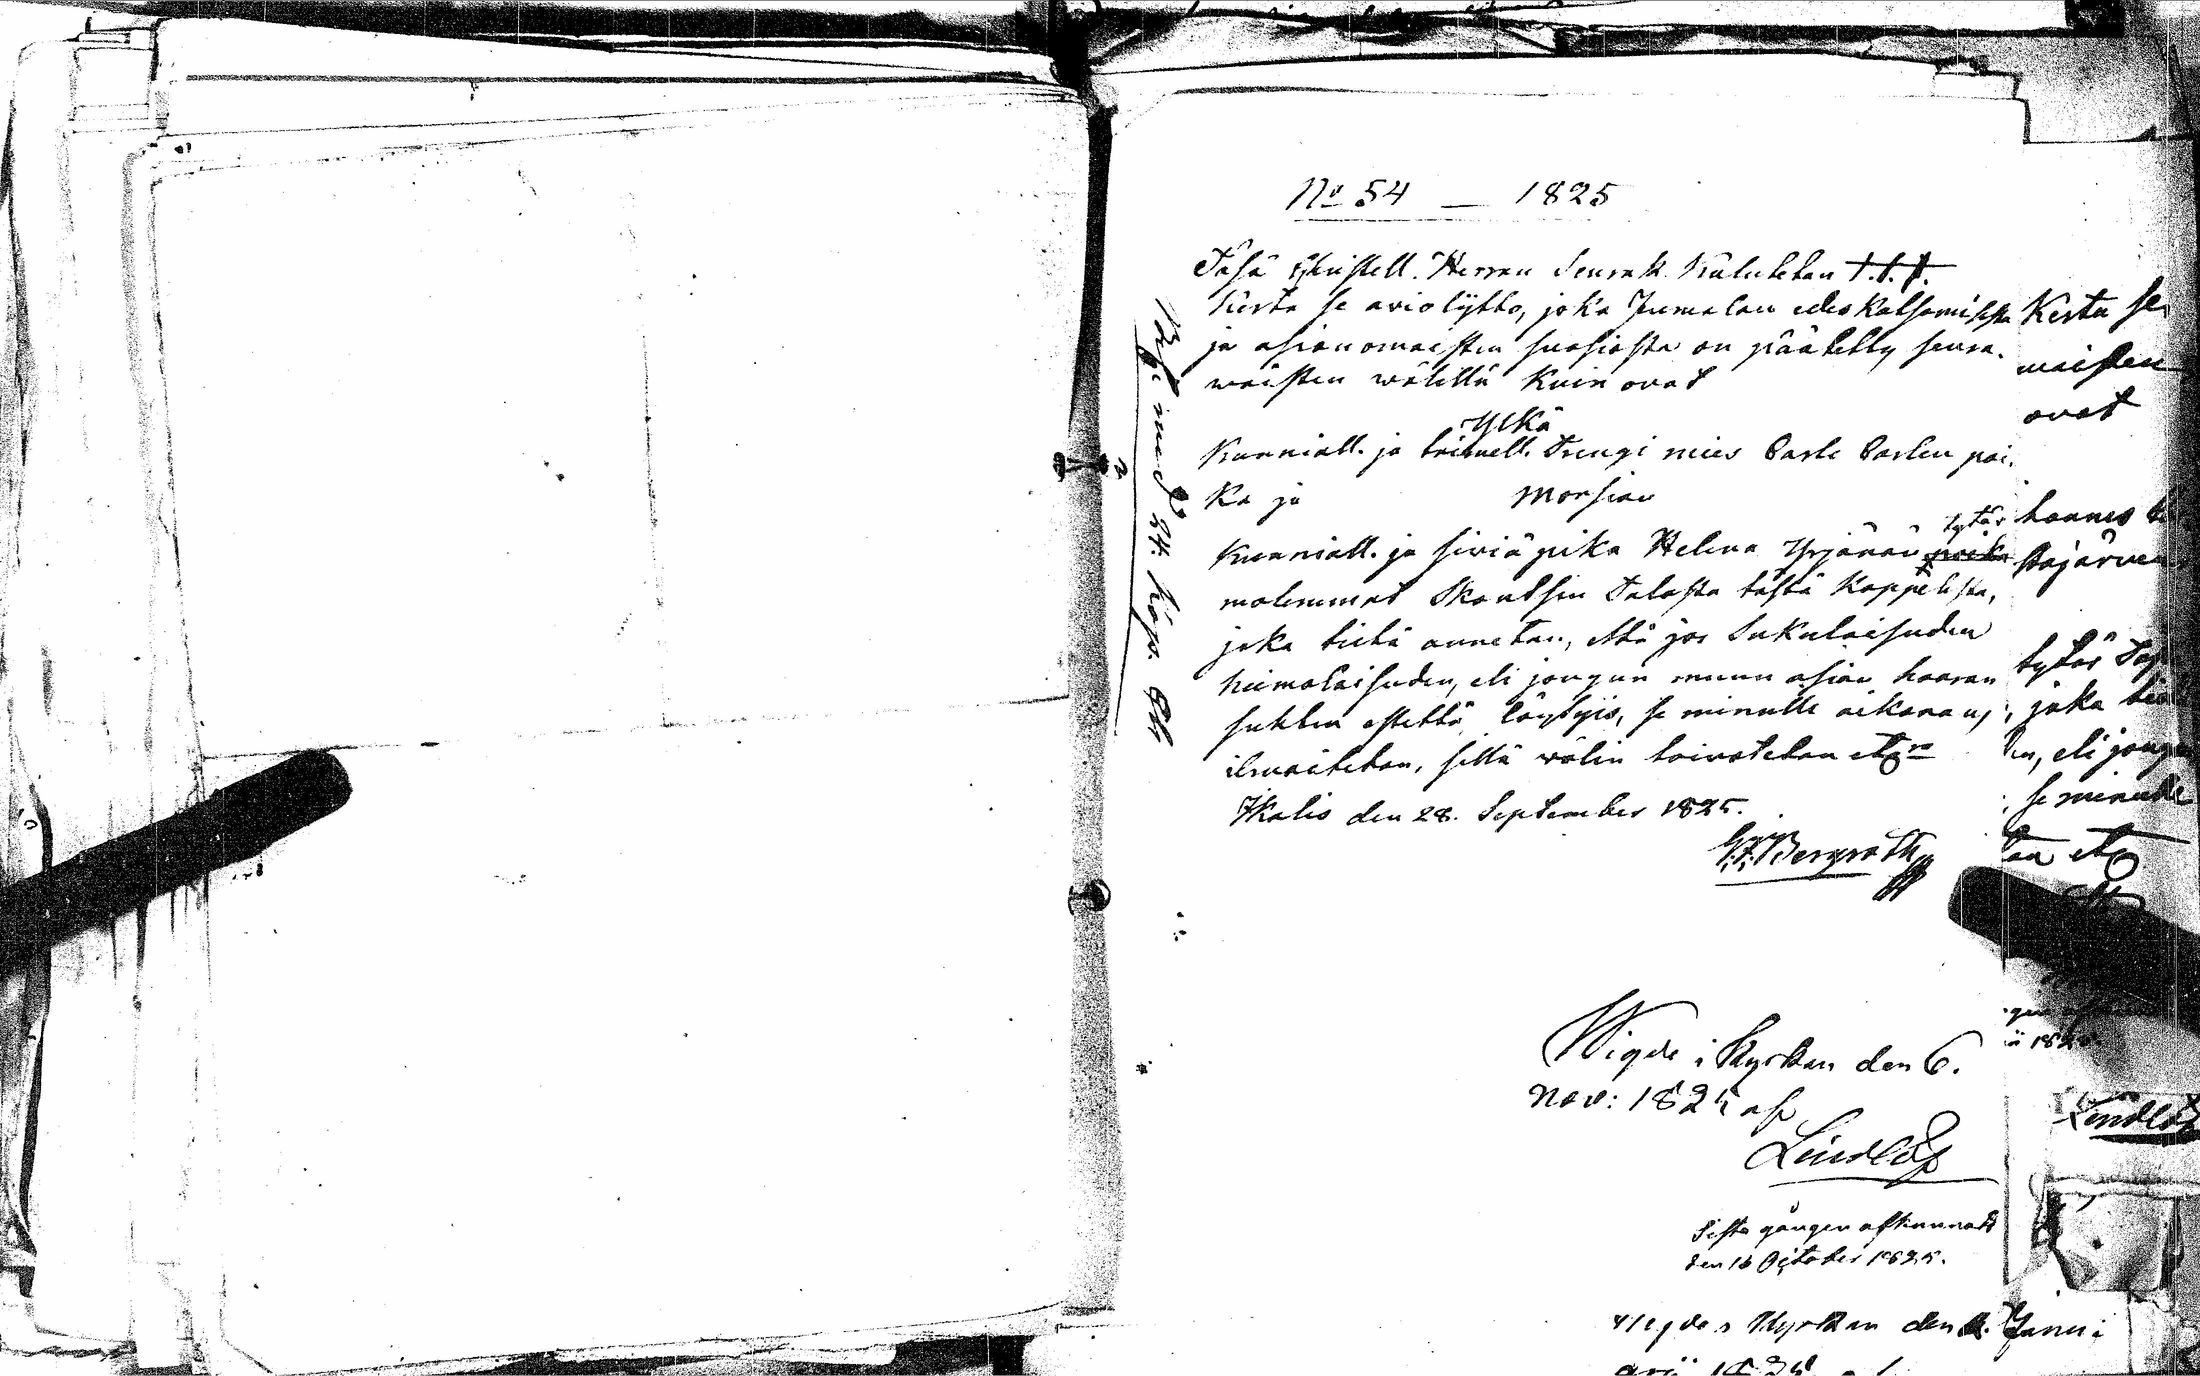 No 54 — 1825
Täsä Christell. Herran Seurak. Kuulutetan t.t.t.
kerta se aviokytto, joka Jumalan edeskatsomisesta
ja asianomaisten suosiosta on päätetty seura-
waisten wälillä kuin ovat
Ylkä
Kunniall. ja toimell. Trengi mies Carle Carlen poi-
ka ja Morsian
Kunniall. ja siviä pika Helena Yrjänän tytär
molemmat Skoutsin Talosta tästä Kappelista,
joka tietä annetan, että jos Sukulaisuden
heimolaisuden, eli jongun muun asian haaran
suhten estettä löytyis, se minulle aikanans
ilmoitetan, sillä wälin toivotetan etc
Ikalis den 28. September 1825.
G. F. Bergroth
Wigde i Kyrkan den 6.
Nov: 1825 af
Lindlöf
Sista gången afkunnadt
den 16 October 1825.
Wigde i Kyrkan den Janu-
arii
Kerta se
waisten
ovat
hannes
stajärven
tytär
, joka
en, eli jongun
se minulle
tan etc
Lindlöf